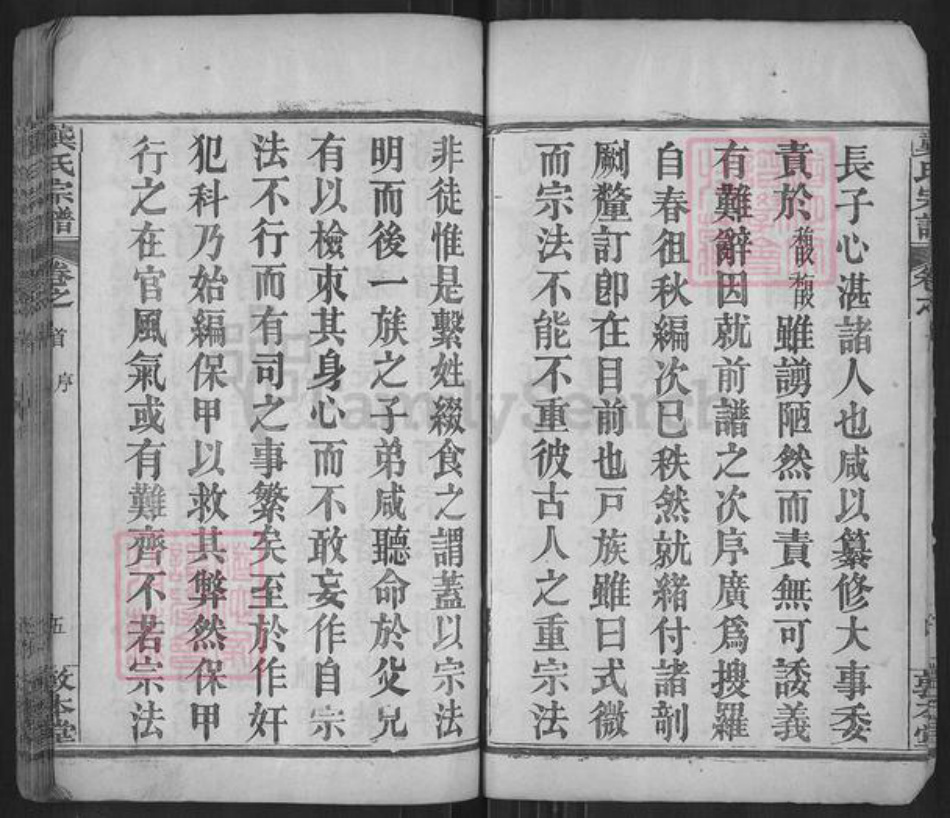 長子心湛諸人也咸以纂修大事委
責於馥馥雖謭陋然而責無可諉義
有難辭因就前譜之次序廣爲搜羅
自春徂秋編次已秩然就緒付諸剞
劂釐訂卽在目前也戸族雖曰式微
而宗法不能不重彼古人之重宗法
龔氏宗譜
卷之首
序
伍
敦本堂
非徒惟是繫姓綴食之謂蓋以宗法
明而後一族之子弟咸聽命於父兄
有以檢束其身心而不敢妄作自宗
法不行而有司之事繁矣至於作奸
犯科乃始編保甲以救其弊然保甲
行之在官風氣或有難齊不若宗法
FamilySearch